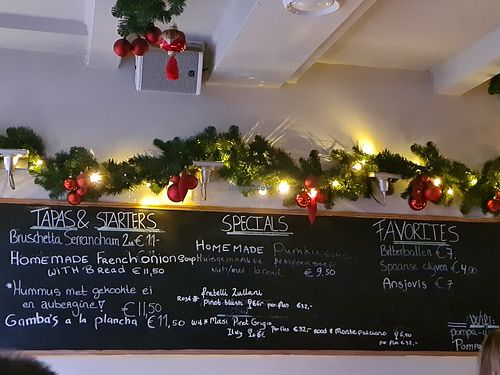 TAPAS & STARTERS
Bruschetta Serranoham 2st € 11.-
HOMEMADE French Onion Soup
WITH Bread € 11,50
*Hummus met gekookte ei
en aubergine! € 11,50
Gamba's a la plancha € 11,50
SPECIALS
HOMEMADE Pumpkinsoup
Huisgemaakte pompoensoep
with/met bread € 9,50
Rosé *
Pinot per fles € 32,-
wit * Masi Pinot Grigio per fles € 32,- rood * Montepulciano € 6,40
Italy per fles € 32,-
FAVORITES
Bitterballen € 7,
Spaanse olijven € 4,00
Ansjovis € 7
WiFi:
pompa-
Pompa